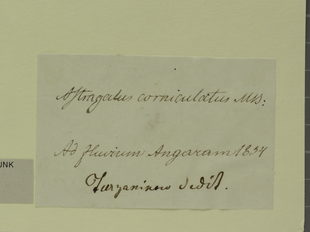 Astragalus corniculatus MB:
Ad fluvium Angaram 1834
Turczaninow dedit.
UNK